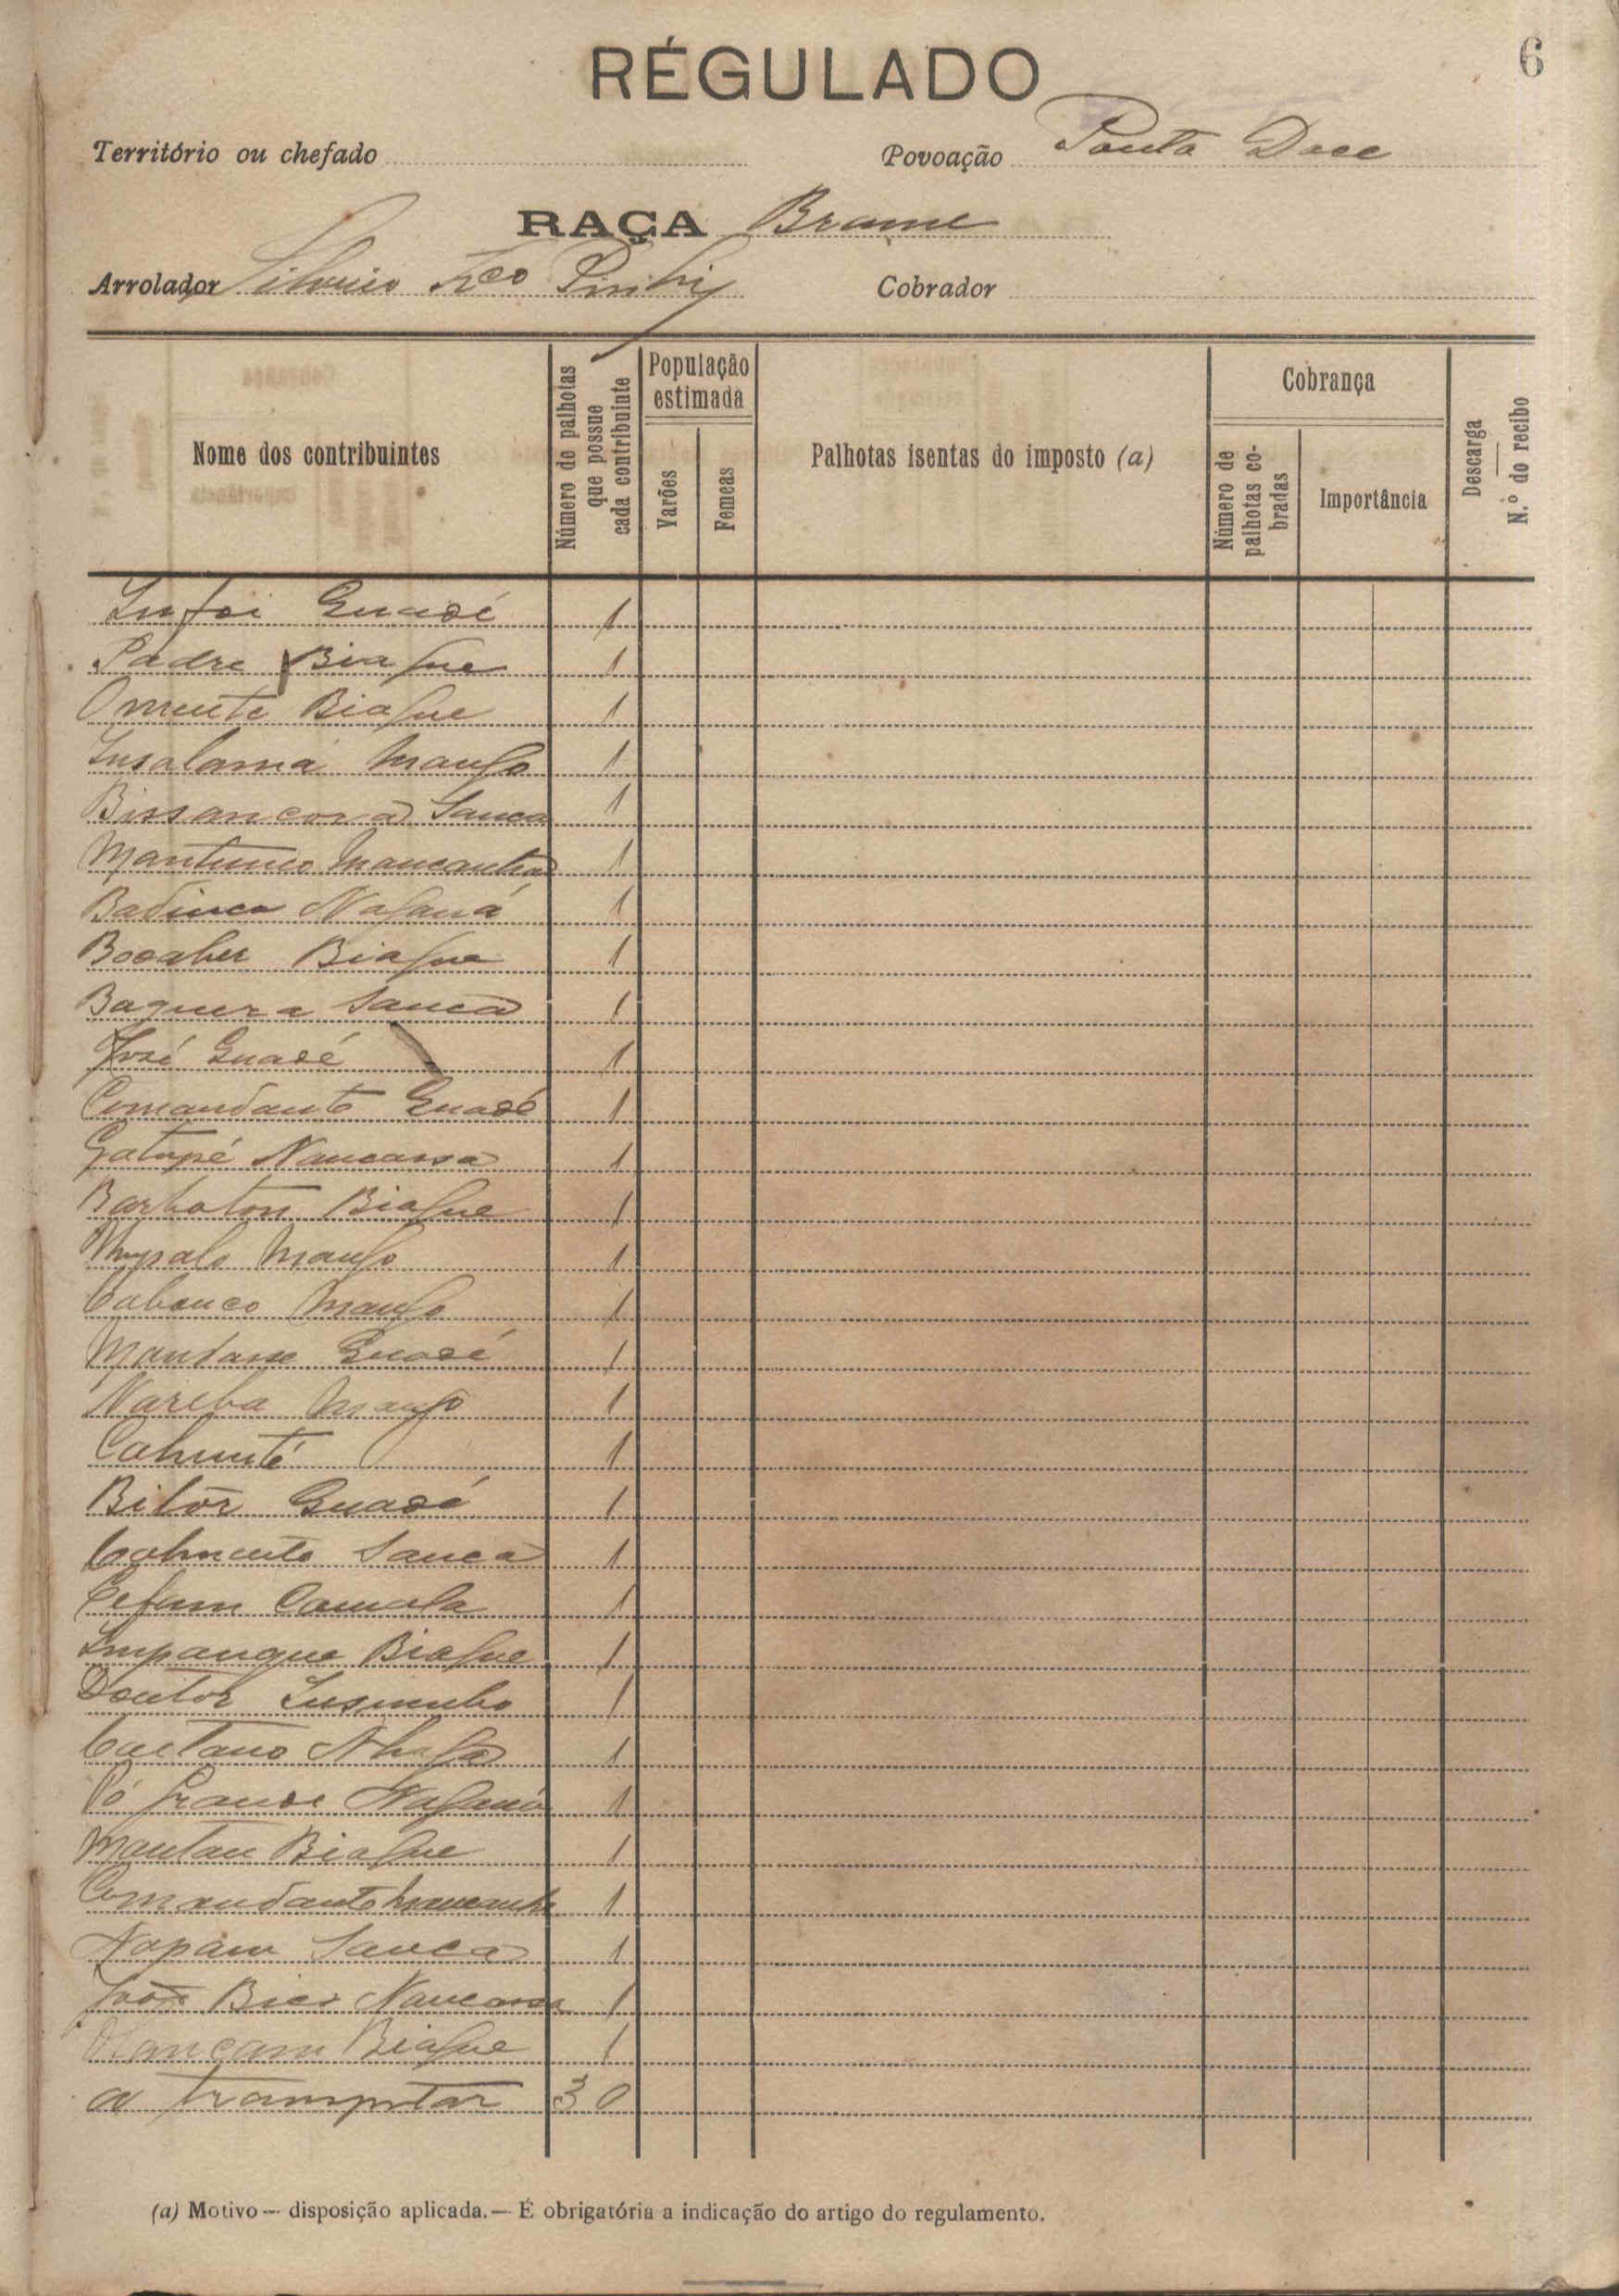 6
RÉGULADO
Território ou chefado
Povoação Ponta Doce
RAÇA Brame
Arrolador Silverio Fco
Cobrador
Nome dos contribuintes
Número de palhotas que possue cada contribuinte
População estimada
Varões
Femeas
Palhotas isentas do imposto (a)
Cobrança
Número de palhotas cobradas
Importância
Descarga
N.º do recibo
Guadé 1
Padre Biague 1
Omente Biague 1
Insalama Mango 1
Bissancora Sanca 1
1
Badinca Nagana 1
Biague 1
Baquera Sanca 1
José Guadé 1
Comandante Guadé 1
Gatupé Nancassa 1
Barboton Biague 1
Mango 1
Cabanco Mango 1
Mandasse Guadé 1
Nareba Mango 1
Cahunté 1
Bitór Guadé 1
Sanca 1
1
Impanque Biague 1
Doutor 1
Caetano 1
Pó Grande Nagana 1
Mantan Biague 1
Comandante 1
Napam Sanca 1
Nancassa 1
Biague 1
a transportar 30
(a) Motivo — disposição aplicada. — É obrigatória a indicação do artigo do regulamento.